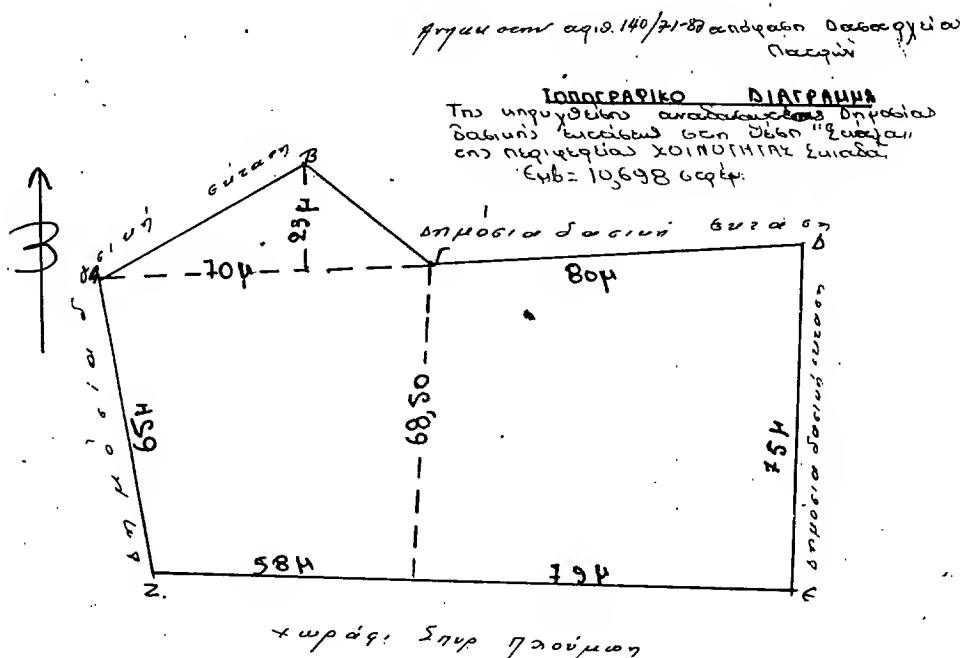 Ανηκει στην αριθ. 140/71-87 απόφαση Δασαρχείου
Πατρών
ΤΟΠΟΓΡΑΦΙΚΟ ΔΙΑΓΡΑΜΜΑ
Της κηρυχθείσης αναδασωτέας Δημοσίας
δασικής εκτάσεως στη θέση "Σκάλα"
της περιφερείας ΚΟΙΝΟΤΗΤΑΣ Σκιαδά,
Εμβ= 10,698 στρέμ.
Β
Γ
Δημόσια δασική έκταση
Δ
Α
23μ
70μ
80μ
Δημόσια δασική έκταση
65μ
68,50
75μ
Δημόσια δασική έκταση
58μ
79μ
Ζ.
Ε
χωράφι Σπυρ Πλούμπη